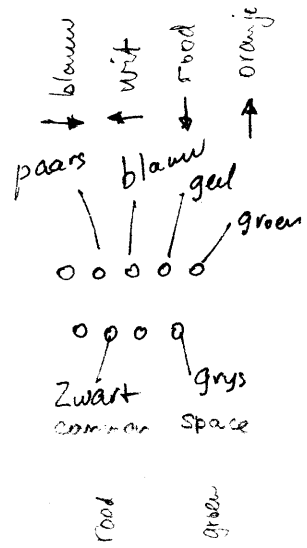 blauw wit rood oranje
paars blauw geel
groen
zwart grys
common space
rood groen